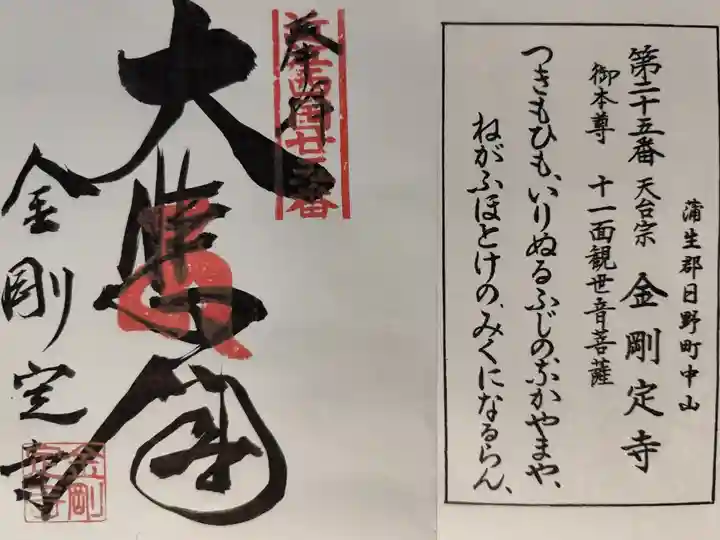 蒲生郡日野町中山
第二十五番 天台宗 金剛定寺
御本尊 十一面観世音菩薩
つきもひも、いりぬるふじのなかやまや、
ねがふほとけの、みくになるらん、
奉拝
近江西国廿五番
大悲
金剛定寺
金剛定寺